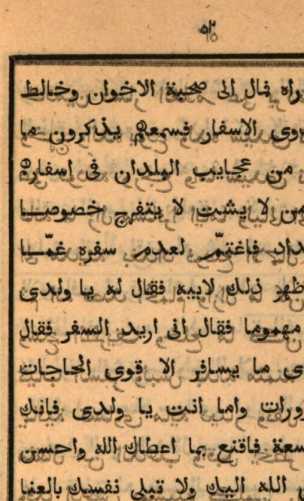 ٥٢
راه فال الى صحبة الاخوان وخالط
وى الاسفار فسمعهم يذكرون ما
من عجايب البلدان فى اسفارهم
من لا يشت لا يتفرج خصوصا
داد فاغتم لعدم سفره غما
ظهر ذلك لابيه فقال له يا ولدى
مهموما فقال انى اريد السفر فقال
ى ما يسافر الا قوى الحاجات
ورات واما انت يا ولدى فانك
سعة فاقنع بما اعطاك الله واحسن
الله اليك ولا تبلى نفسك بالعنا